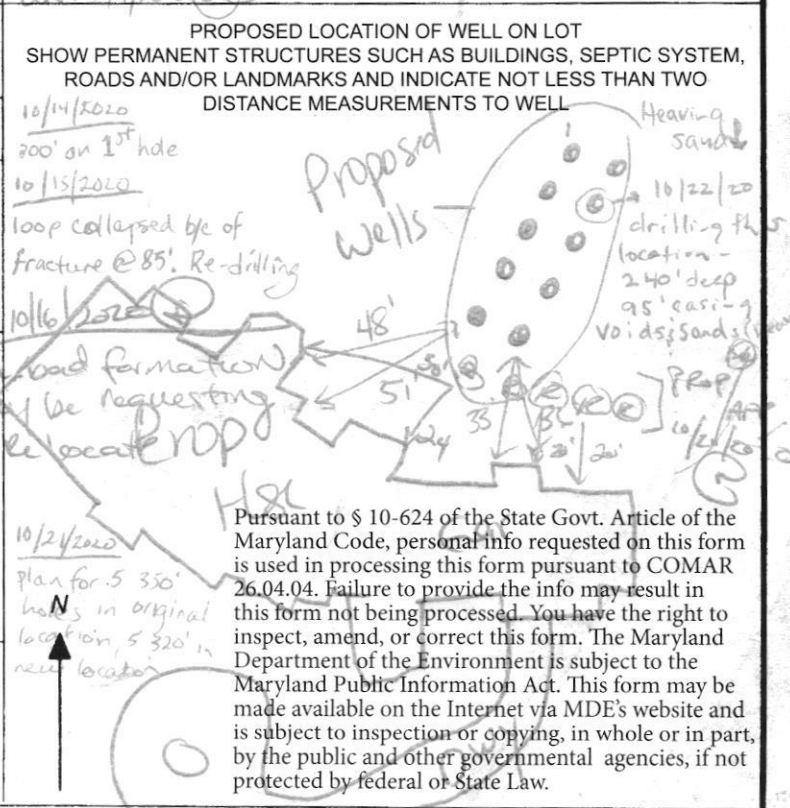 PROPOSED LOCATION OF WELL ON LOT
SHOW PERMANENT STRUCTURES SUCH AS BUILDINGS, SEPTIC SYSTEM,
ROADS AND/OR LANDMARKS AND INDICATE NOT LESS THAN TWO
DISTANCE MEASUREMENTS TO WELL
10/14/2020
300' on 1st hole
10/15/2020
loop collapsed b/c of
fracture @ 85'. Re-drilling
10/16/2020
bad formation
be requesting
relocate
Prop
Hse
10/21/2020
plan for 5 350'
holes in original
location, 5 320' in
new location
N
Proposed
wells
48'
51'
50'
33
24
20'
20'
Heaving
sand
10/22/20
drilling this
location -
240' deep
95' casing
Voids & Sands
PROP
Pursuant to § 10-624 of the State Govt. Article of the
Maryland Code, personal info requested on this form
is used in processing this form pursuant to COMAR
26.04.04. Failure to provide the info may result in
this form not being processed. You have the right to
inspect, amend, or correct this form. The Maryland
Department of the Environment is subject to the
Maryland Public Information Act. This form may be
made available on the Internet via MDE's website and
is subject to inspection or copying, in whole or in part,
by the public and other governmental agencies, if not
protected by federal or State Law.